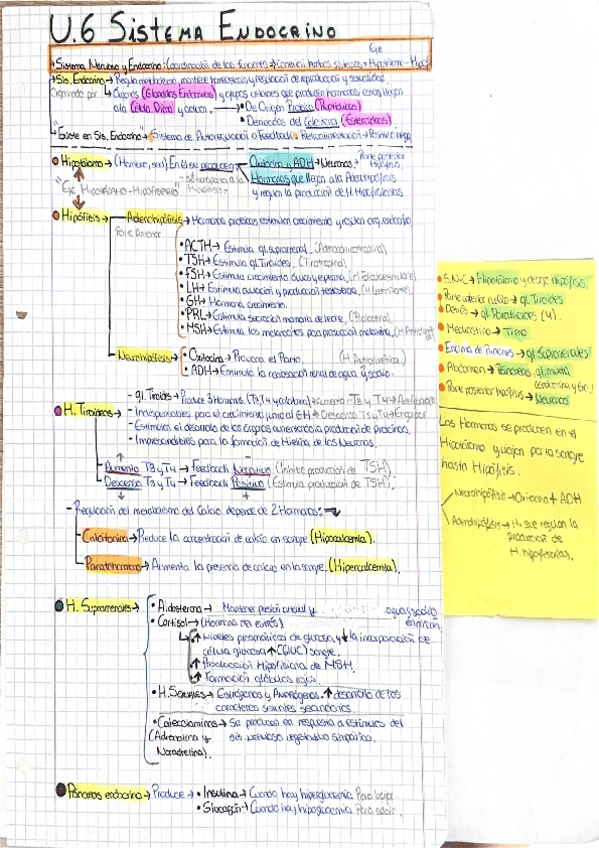 U.6 SISTEMA ENDOCRINO
Sistema Nervioso y Endocrino: Coordinación de las funciones → Conexión ambos sistemas → Hipotálamo - Hipóf
Sis. Endocrino → Regula metabolismo, mantiene homeostasis y regulación de reproducción y sexualidad
Organizado por → Órganos (Glándulas Endocrinas) y grupos celulares que producen hormonas estas llegan
a la Célula Diana y actúan. → De Origen Proteico (Peptídicas)
→ Derivados del colesterol (Esteroideas).
Existe en Sis. Endocrino → Sistema de Autorregulación o Feedback
Hipotálamo → (Hambre, sed). En él se producen Oxitocina y ADH → Neuronas. Parte posterior Hipófisis.
Hormonas que llegan a la Adenohipófisis
y regulan la producción de H. Hipofisarias
"Eje Hipotálamo-Hipofisario"
Hipófisis Adenohipófisis → Hormonas proteicas estimulan crecimiento y regulan
Parte Anterior
• ACTH → Estimula gl. suprarrenal.
• TSH → Estimula gl. Tiroides. (Tirotropina)
• FSH → Estimula crecimiento óvulos y esperma.
• LH → Estimula ovulación y producción testosterona. (H. Luteinizante)
• GH → Hormona crecimiento.
• PRL → Estimula secreción mamaria de leche. (Prolactina)
• MSH → Estimula los melanocitos para producción melanina.
Neurohipófisis → • Oxitocina → Provoca el Parto.
• ADH → Estimula la reabsorción renal de agua y sodio.
H. Tiroideas
- gl. Tiroides → Produce 3 Hormonas (T3, T4 y calcitonina) Aumento T3 y T4 → Adelgazar
- Indispensables para el crecimiento junto al GH → Descenso T3 y T4 → Engordar
- Estimulan el desarrollo de los órganos aumentando la producción de proteínas.
- Imprescindibles para la formación de Mielina de las Neuronas.
Aumento T3 y T4 → Feedback Negativo (Inhibe producción de TSH)
Descenso T3 y T4 → Feedback Positivo (Estimula producción de TSH).
- Regulación del metabolismo del Calcio depende de 2 Hormonas:
Calcitonina → Reduce la concentración de calcio en sangre (Hipocalcemia).
Paratohormona → Aumenta la presencia de calcio en la sangre. (Hipercalcemia).
H. Suprarrenales → • Aldosterona → Mantener presión arterial y agua y sodio en riñón.
• Cortisol → (Hormona del estrés)
↑ Niveles plasmáticos de glucosa, y ↓ la incorporación de
célula glucosa ↑ (GLUC) sangre.
↑ Producción Hipofisiaria de MSH.
↑ Formación glóbulos rojos.
• H. Sexuales → Estrógenos y Andrógenos. ↑ desarrollo de los
caracteres sexuales secundarios.
• Catecolaminas → Se producen en respuesta a estímulos del
(Adrenalina y sis. nervioso vegetativo simpático.
Noradrenalina).
Páncreas endocrino → Produce → • Insulina → Cuando hay hiperglucemia Para bajar.
• Glucagón → Cuando hay hipoglucemia Para subir.
S.N.C → Hipotálamo y debajo hipófisis.
Parte anterior cuello → gl. Tiroides
Detrás → gl. Paratiroides (4).
Mediastino → Timo
Encima de Riñones → gl. Suprarrenales
Abdomen → Páncreas gl. mixta
(endocrina y exo.)
Parte posterior hipófisis → Neuronas
Las Hormonas se producen en el
Hipotálamo y viajan por la sangre
hasta Hipófisis.
Neurohipófisis → Oxitocina + ADH
Adenohipófisis → H. que regulan la
producción de
H. hipofisarias.